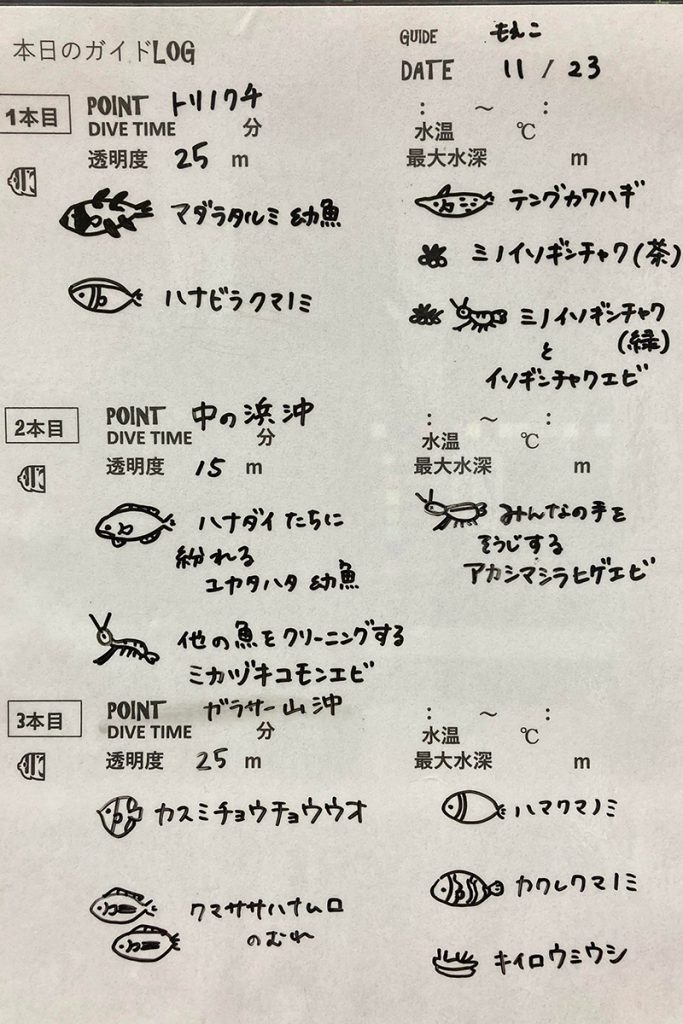 本日のガイドLOG
GUIDE もえこ
DATE 11 / 23
1本目
POINT トリノクチ
DIVE TIME 分
透明度 25 m
: ～ :
水温 ℃
最大水深 m
マダラタルミ 幼魚
ハナビラクマノミ
テングカワハギ
ミノイソギンチャク(茶)
ミノイソギンチャク
(緑)
と
イソギンチャクエビ
2本目
POINT 中の浜沖
DIVE TIME 分
透明度 15 m
: ～ :
水温 ℃
最大水深 m
ハナダイたちに
紛れる
ユカタハタ 幼魚
他の魚をクリーニングする
ミカヅキコモンエビ
みんなの手を
そうじする
アカシマシラヒゲエビ
3本目
POINT ガラサー山沖
DIVE TIME 分
透明度 25 m
: ～ :
水温 ℃
最大水深 m
カスミチョウチョウウオ
クマササハナムロ
のむれ
ハマクマノミ
カクレクマノミ
キイロウミウシ